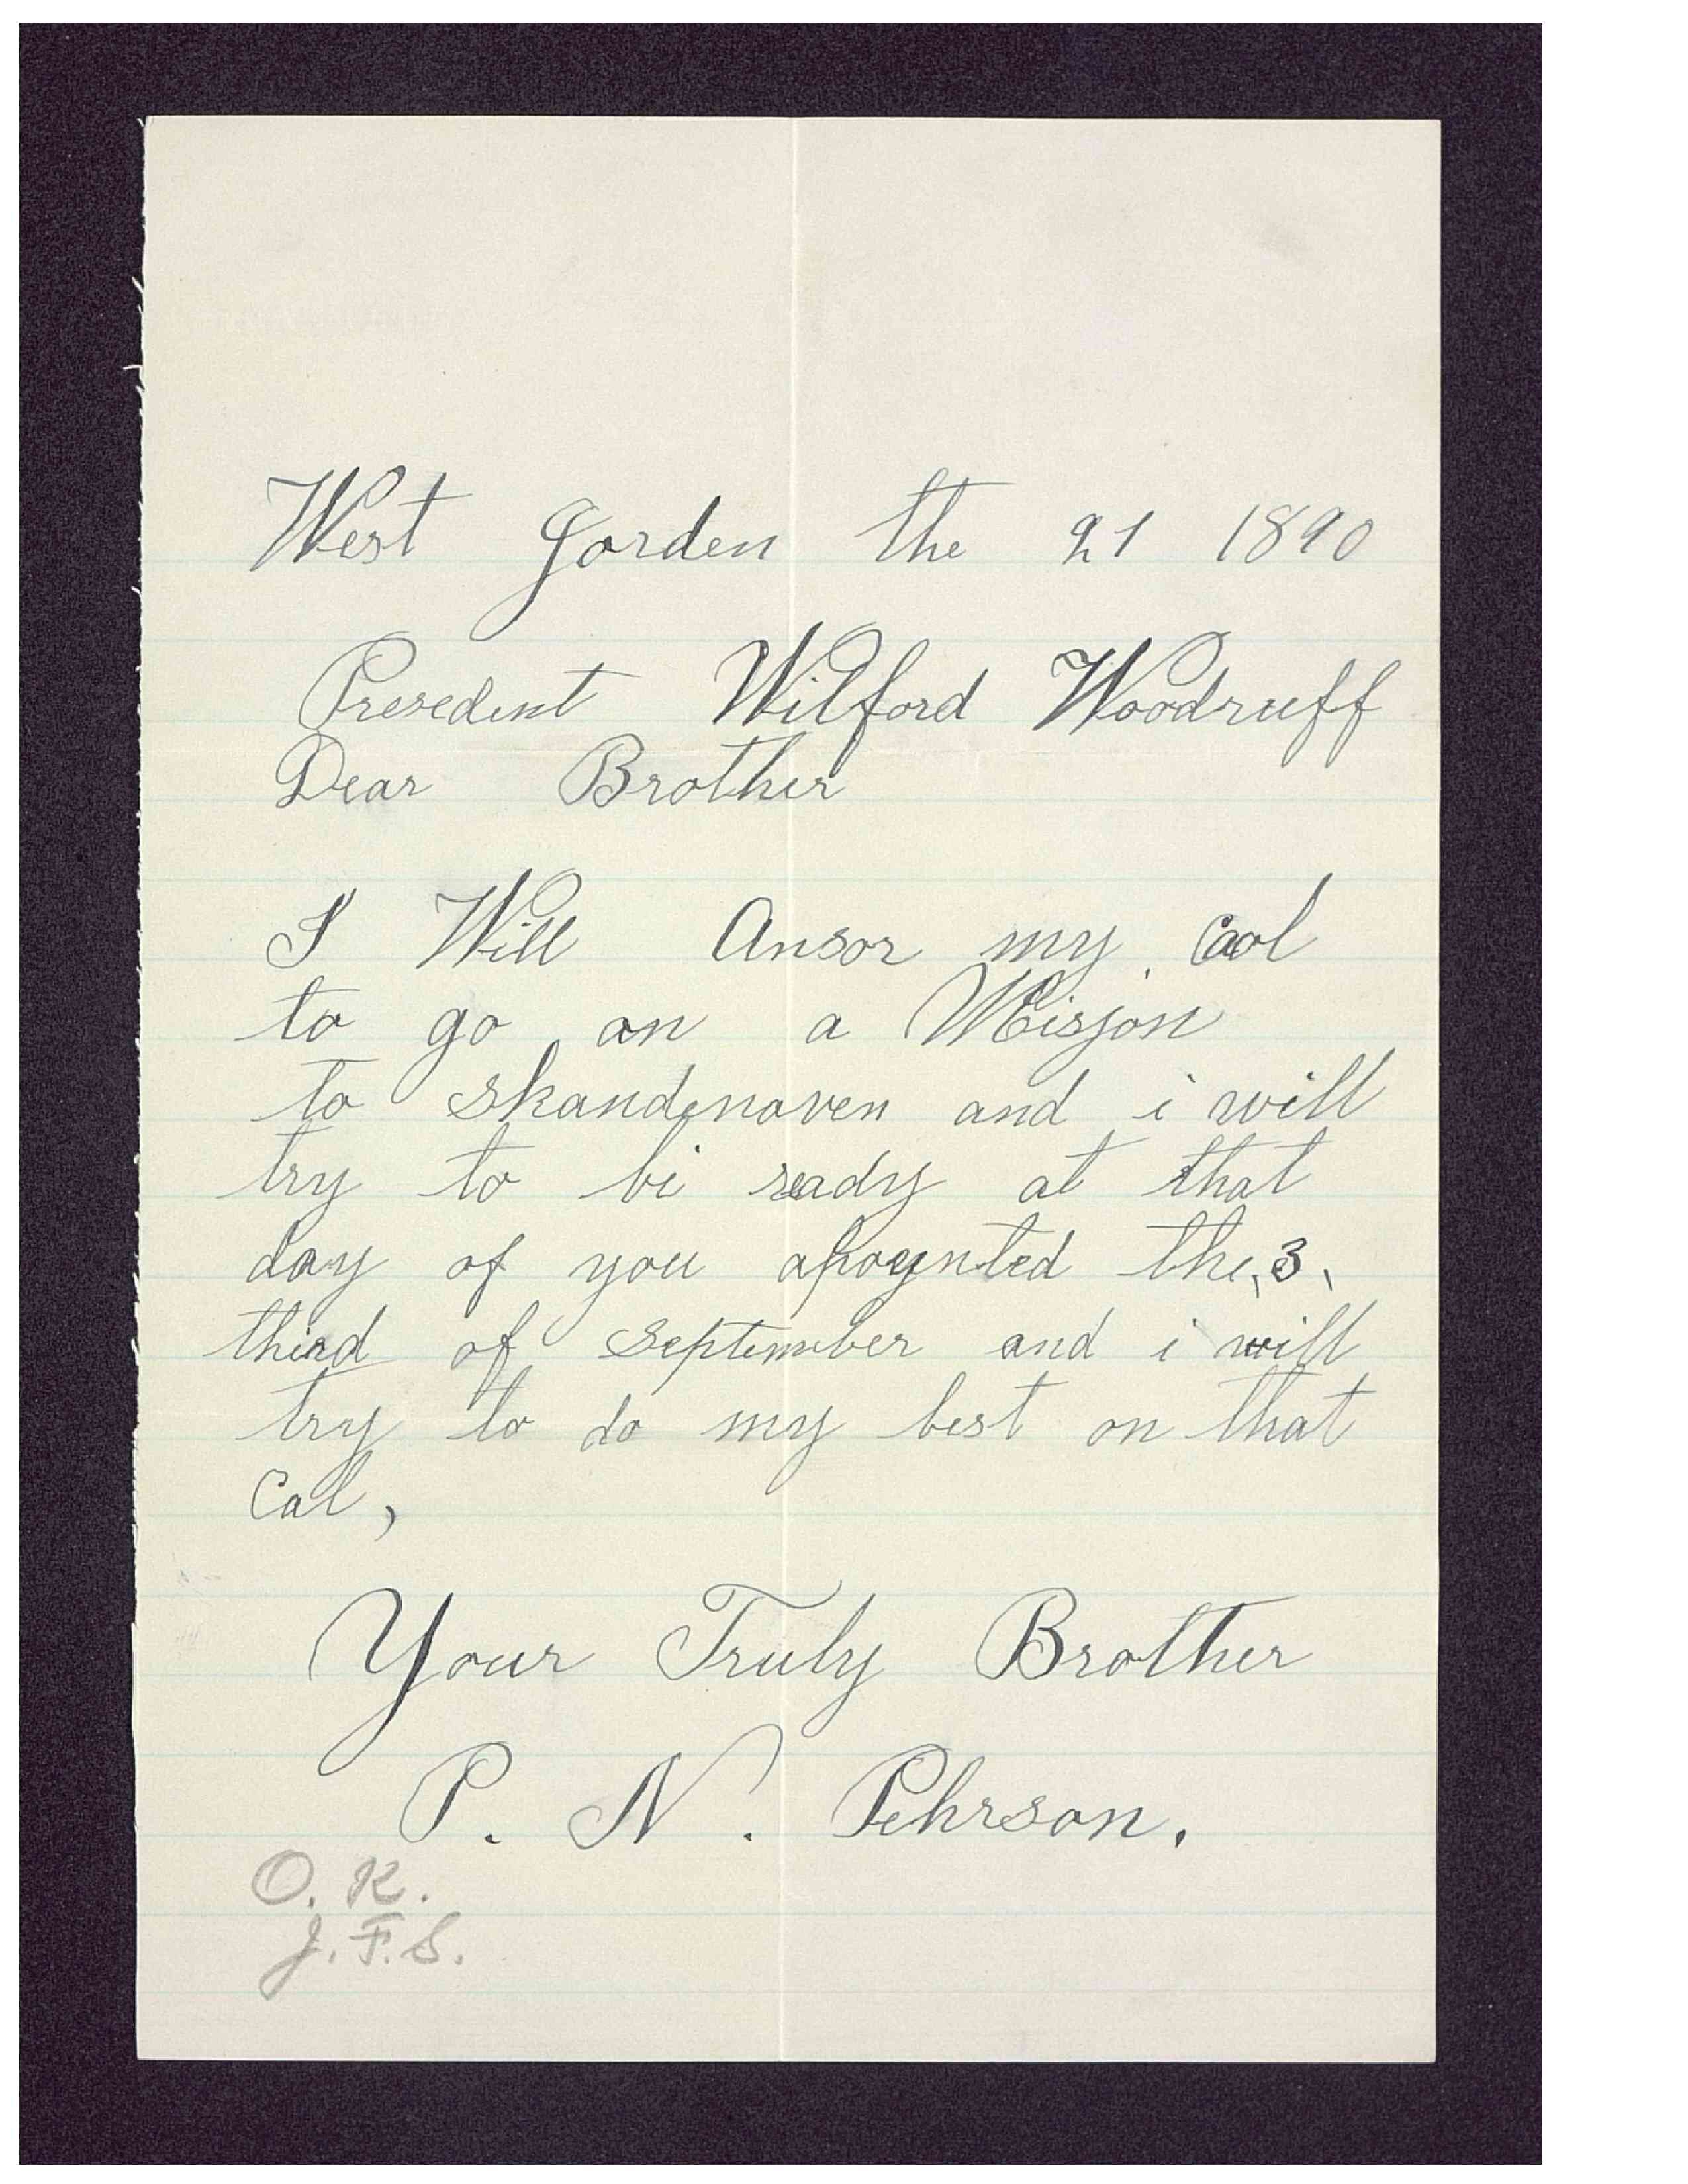 West Jorden the 21 1890
Presedent Wilford Woodruff
Dear Brother
I Will Ansor my Caol
to go on a Misjon
to skandenaven and i will
try to bi ready at that
day of you apoynted the, 3,
third of September and i will
try to do my best on that
Cal,
Your Truly Brother
P. N. Pehrson.
O. K.
J. F. S.